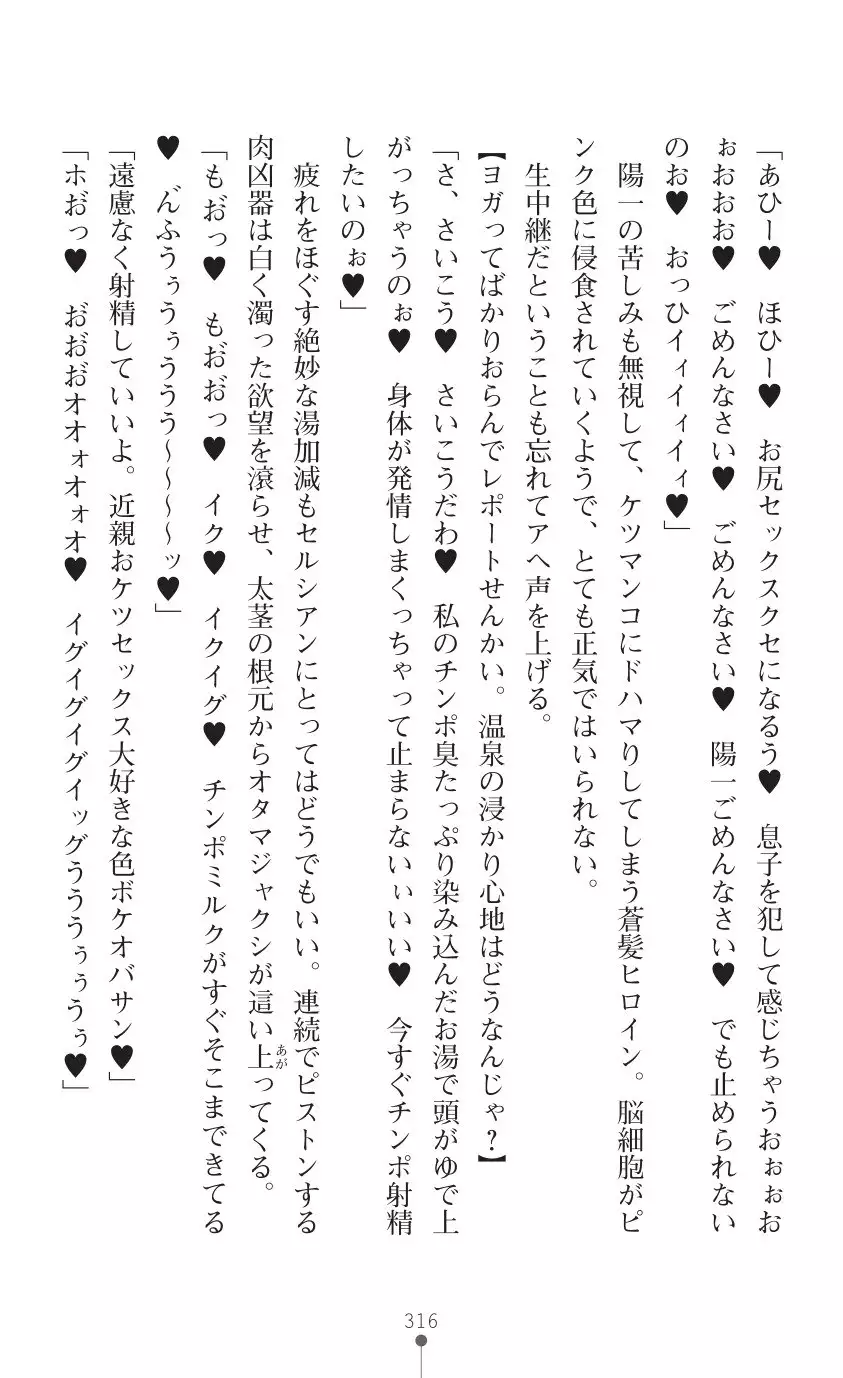 「あひー♥　ほひー♥　お尻セックスクセになるう♥　息子を犯して感じちゃうおぉぉお
ぉおおお♥　ごめんなさい♥　ごめんなさい♥　陽一ごめんなさい♥　でも止められない
のお♥　おっひイィイィイィ♥」
　陽一の苦しみも無視して、ケツマンコにドハマりしてしまう蒼髪ヒロイン。脳細胞がピ
ンク色に侵食されていくようで、とても正気ではいられない。
　生中継だということも忘れてアヘ声を上げる。
【ヨガってばかりおらんでレポートせんかい。温泉の浸かり心地はどうなんじゃ？】
「さ、さいこう♥　さいこうだわ♥　私のチンポ臭たっぷり染み込んだお湯で頭がゆで上
がっちゃうのぉ♥　身体が発情しまくっちゃって止まらないぃいい♥　今すぐチンポ射精
したいのぉ♥」
　疲れをほぐす絶妙な湯加減もセルシアンにとってはどうでもいい。連続でピストンする
肉凶器は白く濁った欲望を滾らせ、太茎の根元からオタマジャクシが這い上（あが）ってくる。
「もお゛っ♥　もお゛お゛っ♥　イク♥　イクイグ♥　チンポミルクがすぐそこまできてる
♥　ん゛ふうぅうぅううう～～～～ッ♥」
「遠慮なく射精していいよ。近親おケツセックス大好きな色ボケオバサン♥」
「ホお゛っ♥　お゛お゛お゛オオォオォオ♥　イグイグイグイッグうううぅぅうぅ♥」
316